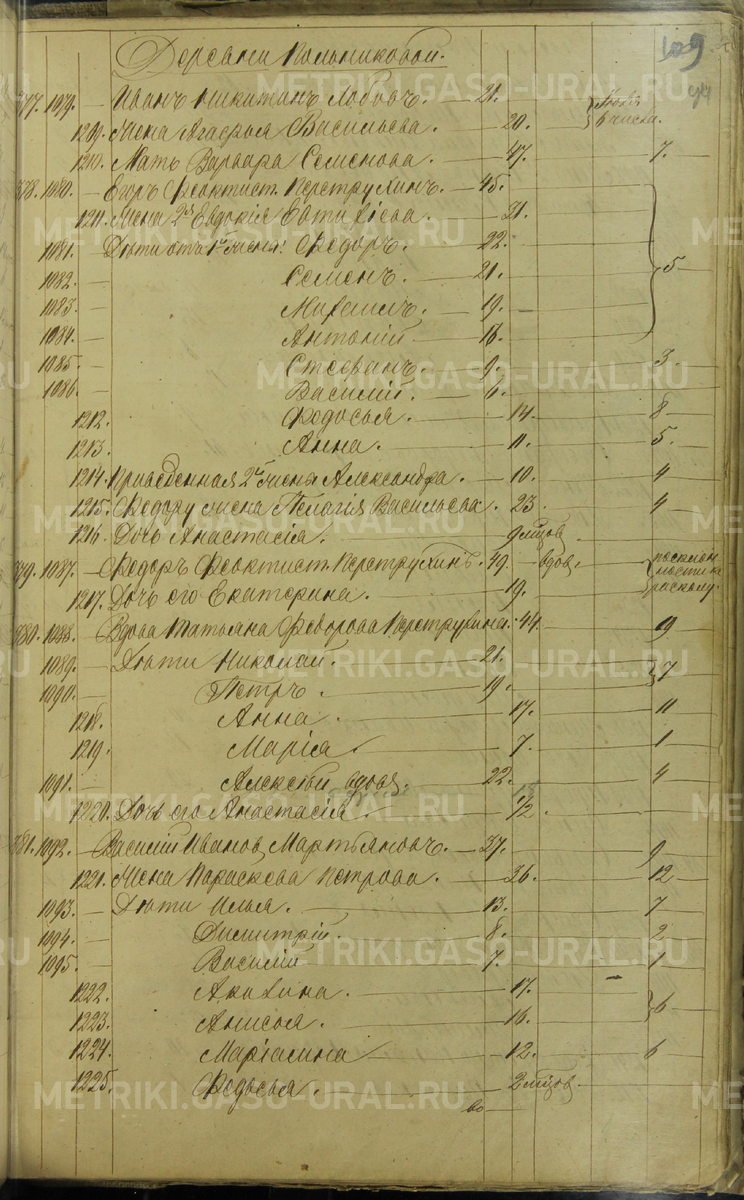 109
94
Деревни Кольниковой.
377. 1079. — Иванъ Никитинъ Лобовъ. — 21.
1209. Жена Агафья Васильева — 20.
1210. Мать Варвара Семенова. — 47. 7.
378. 1080. — Егоръ Феоктист. Перструхинъ. — 45.
1211. Жена 2я Евдокія Евтиѳіева. — 31.
1081. — Дѣти отъ 1й жены: Ѳедоръ. — 22.
1082. — Семенъ. — 21. 5
1083. — Михаилъ. — 19.
1084. — Антоній — 18.
1085. — Стефанъ. — 9. 3
1086. — Василій. — 6.
1212. Ѳедосья. — 14. 8
1213. Анна. — 11. 5.
1214. Приведенная 2й жены Александра. — 10. 4
1215. Ѳедору жена Пелагія Васильева. 23. 4
1216. Дочь Анастасія. — 9 мѣцов.
379. 1087. — Ѳедоръ Феоктист. Перструхинъ. 49. — вдов. по склон ности къ расколу.
1217. Дочь его Екатерина. — 19.
380. 1088. — Вдова Татьяна Ѳедорова Перструхина. 44. 9
1089. — Дѣти Николай. — 21. 7
1090. — Петръ. — 19.
1218. Анна. — 17. 11
1219. Марія. — 7. 1
1091. — Алексѣй вдовъ. 22. 4
1220. Дочь его Анастасія. — 1/2.
381. 1092. — Василій Иванов. Мартьяновъ. — 37. 9
1221. Жена Параскева Петрова. — 36. 12
1093. — Дѣти Илья. — 13. 7
1094. — Димитрій. — 8. 2
1095. — Василій — 7. 1
1222. Акилина. — 17. 6
1223. Анисья. — 16.
1224. Маріамина — 12. 6
1225. Ѳедосья. — 2 мѣцов.
METRIKI.GASO-URAL.RU